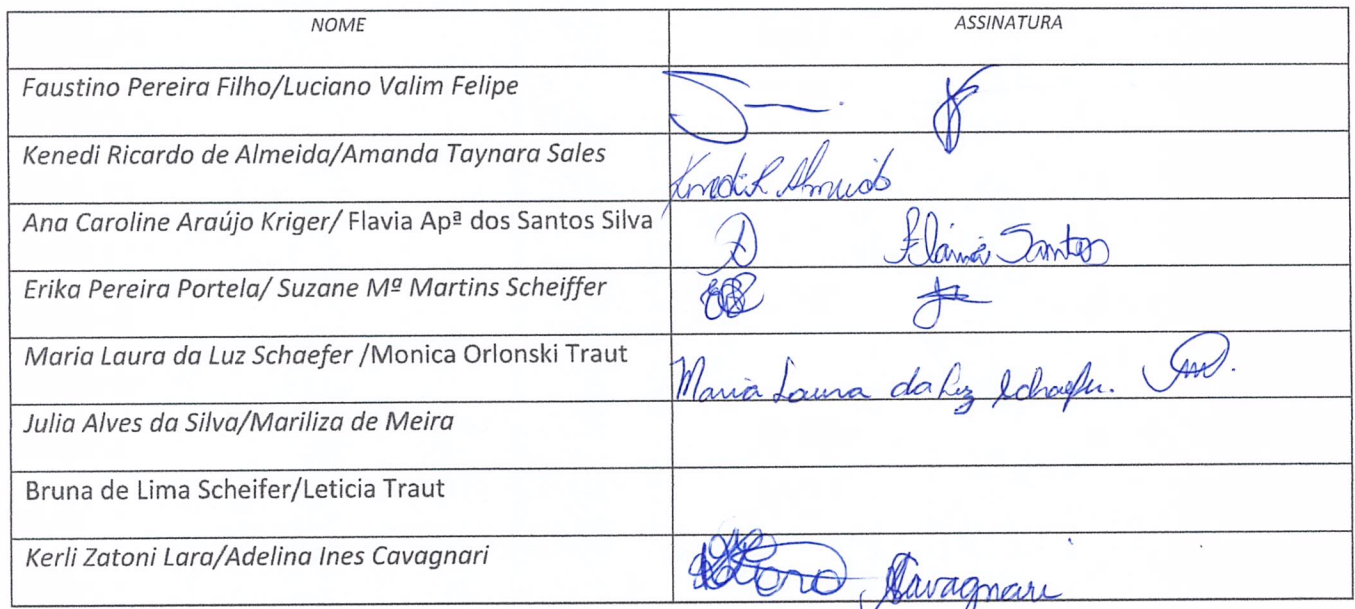 NOME ASSINATURA
Faustino Pereira Filho/Luciano Valim Felipe
Kenedi Ricardo de Almeida/Amanda Taynara Sales
Kenedi R Almeida
Ana Caroline Araújo Kriger/ Flavia Apª dos Santos Silva
Flávia Santos
Erika Pereira Portela/ Suzane Mª Martins Scheiffer
Maria Laura da Luz Schaefer /Monica Orlonski Traut
Maria Laura da Luz Schaefer.
Julia Alves da Silva/Mariliza de Meira
Bruna de Lima Scheifer/Leticia Traut
Kerli Zatoni Lara/Adelina Ines Cavagnari
Cavagnari